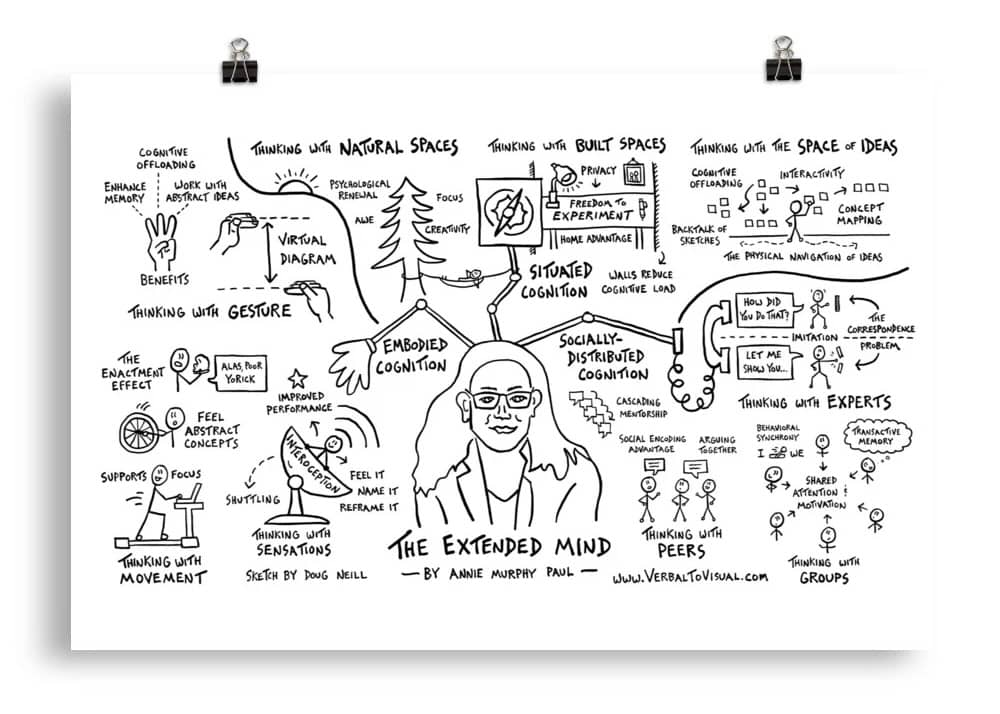 COGNITIVE
OFFLOADING
ENHANCE
MEMORY
WORK WITH
ABSTRACT IDEAS
BENEFITS
VIRTUAL
DIAGRAM
THINKING WITH GESTURE
THINKING WITH NATURAL SPACES
PSYCHOLOGICAL
RENEWAL
AWE
FOCUS
CREATIVITY
THINKING WITH BUILT SPACES
PRIVACY
FREEDOM TO
EXPERIMENT
HOME ADVANTAGE
WALLS REDUCE
COGNITIVE LOAD
SITUATED
COGNITION
THINKING WITH THE SPACE OF IDEAS
COGNITIVE
OFFLOADING
INTERACTIVITY
CONCEPT
MAPPING
BACKTALK OF
SKETCHES
THE PHYSICAL NAVIGATION OF IDEAS
EMBODIED
COGNITION
SOCIALLY-
DISTRIBUTED
COGNITION
HOW DID
YOU DO THAT?
IMITATION
LET ME
SHOW YOU...
THE
CORRESPONDENCE
PROBLEM
THINKING WITH EXPERTS
THE
ENACTMENT
EFFECT
ALAS, POOR
YORICK
FEEL
ABSTRACT
CONCEPTS
SUPPORTS FOCUS
THINKING WITH
MOVEMENT
IMPROVED
PERFORMANCE
INTEROCEPTION
SHUTTLING
FEEL IT
NAME IT
REFRAME IT
THINKING WITH
SENSATIONS
SKETCH BY DOUG NEILL
THE EXTENDED MIND
— BY ANNIE MURPHY PAUL —
CASCADING
MENTORSHIP
SOCIAL ENCODING
ADVANTAGE
ARGUING
TOGETHER
THINKING WITH
PEERS
WWW.VERBALTOVISUAL.COM
BEHAVIORAL
SYNCHRONY
I WE
TRANSACTIVE
MEMORY
SHARED
ATTENTION &
MOTIVATION
THINKING WITH
GROUPS